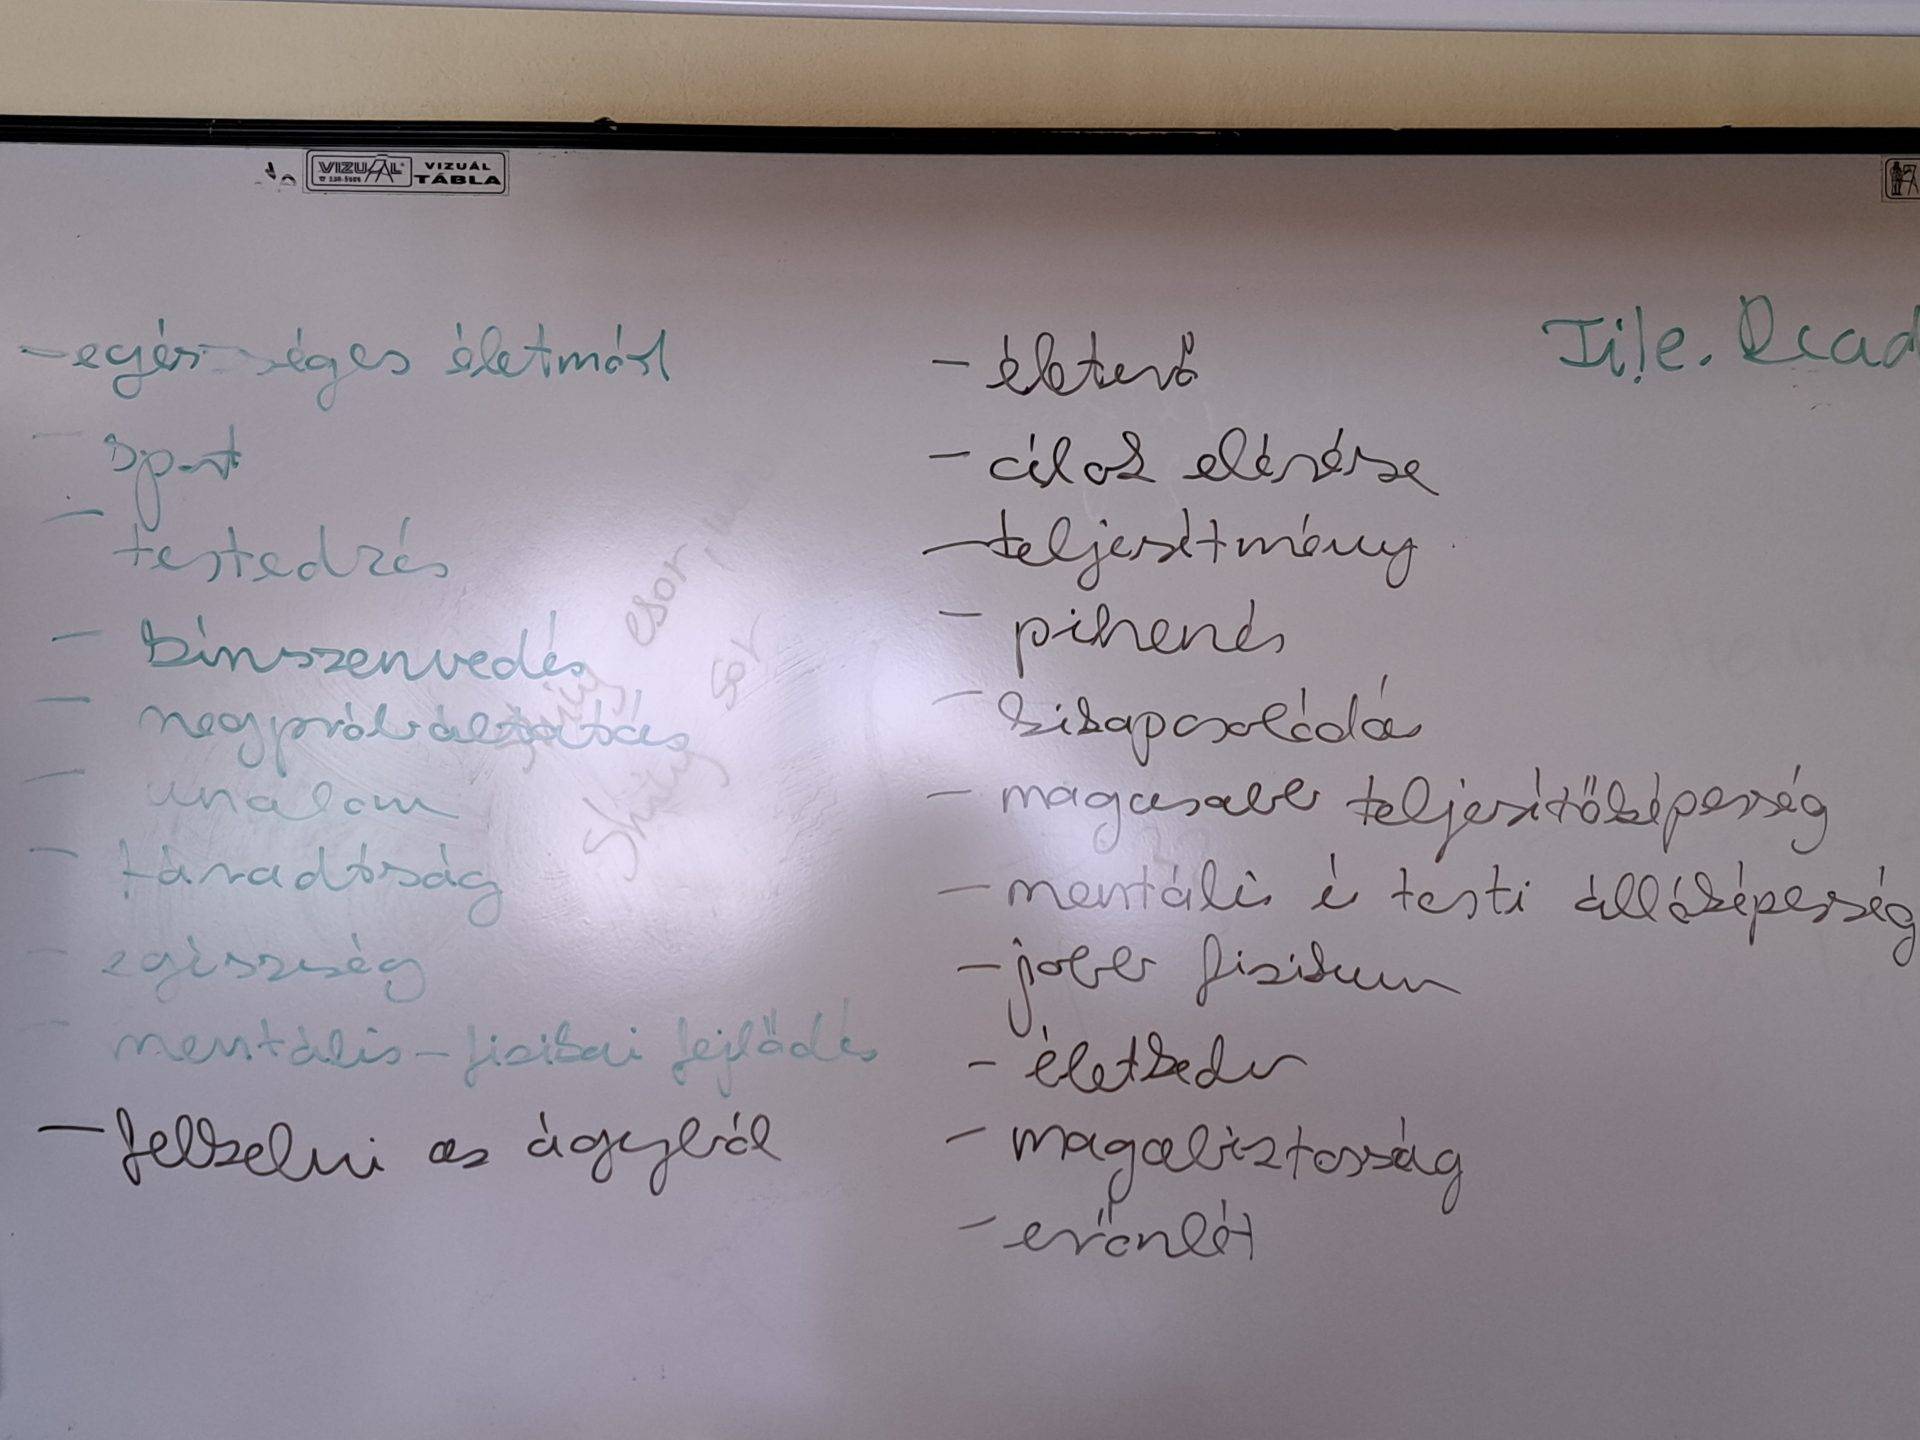 VIZUÁL VIZUÁL
TÁBLA
- egészséges életmód
- sport
- testedzés
- kínszenvedés
- megpróbáltatás
- unalom
- fáradtság
- egészség
- mentális-fizikai fejlődés
- felkelni az ágyból
- életerő
- célok elérése
- teljesítmény
- pihenés
- kikapcsolódás
- magasabb teljesítőképesség
- mentális és testi állóképesség
- jobb fizikum
- életkedv
- magabiztosság
- erőnlét